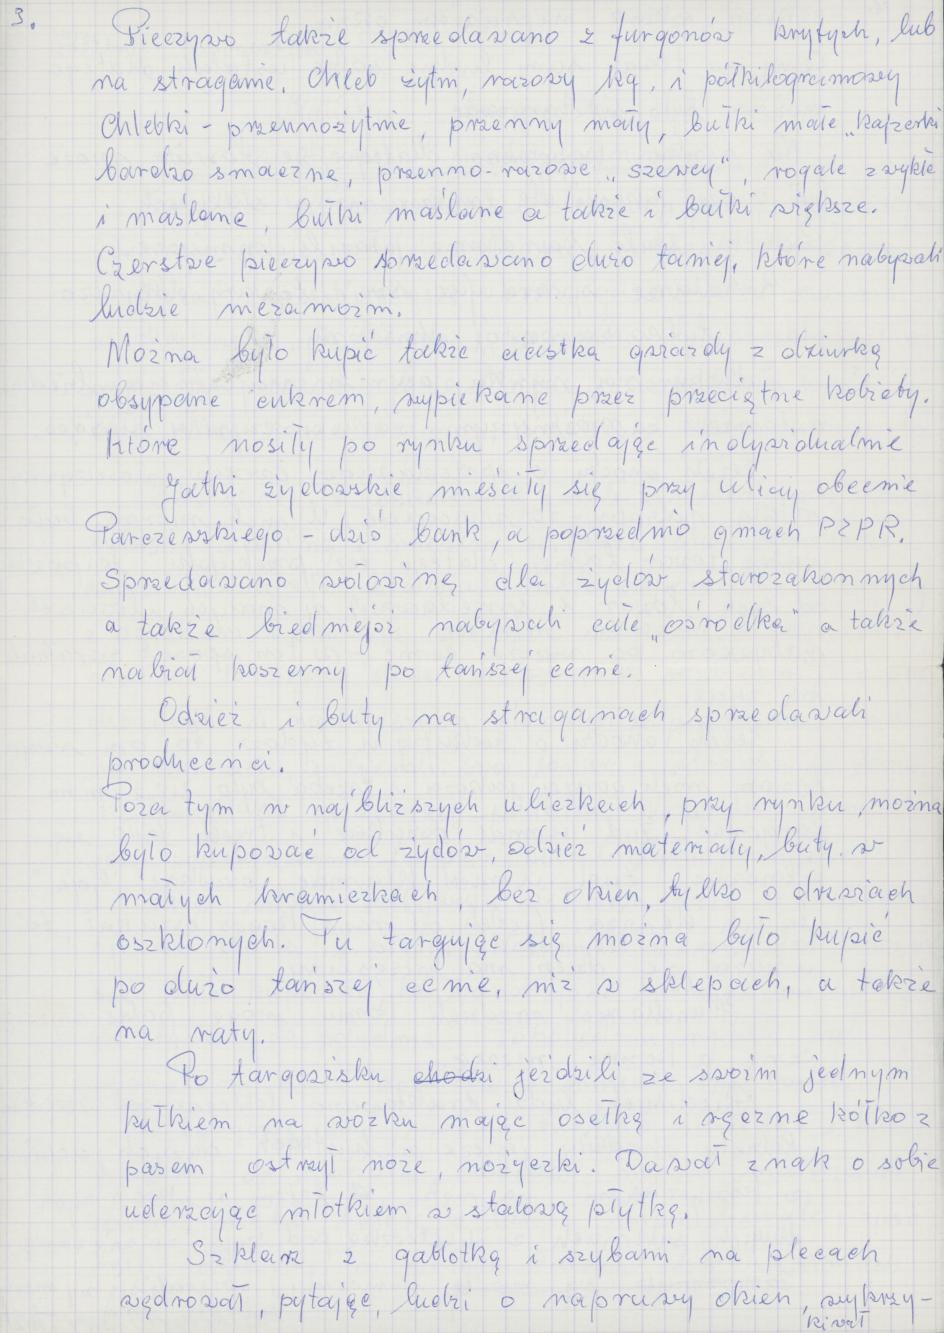 3.
Pieczywo także sprzedawano z furgonów krytych, lub
na straganie. Chleb żytni, razowy kg. i półkilogramowy
Chlebki - pszennożytnie, pszenny mały, bułki małe „kajzerki
bardzo smaczne, pszenno-razowe „szewcy", rogale zwykłe
i maślane, bułki maślane a także i bułki większe.
Czerstwe pieczywo sprzedawano dużo taniej, które nabywali
ludzie niezamożni.
Można było kupić także ciastka gwiazdy z dziurką
obsypane cukrem, wypiekane przez przeciętne kobiety.
które nosiły po rynku sprzedając indywidualnie
Jatki żydowskie mieściły się przy ulicy obecnie
Parczewskiego - dziś bank, a poprzednio gmach PZPR.
Sprzedawano wołowinę dla żydów starozakonnych
a także biedniejsi nabywali całe „ośródka" a także
nabiał koszerny po tańszej cenie.
Odzież i buty na straganach sprzedawali
producenci.
Poza tym w najbliższych uliczkach, przy rynku, można
było kupować od żydów, odzież materiały, buty w
małych kramiczkach, bez okien, tylko o drzwiach
oszklonych. Tu targując się można było kupić
po dużo tańszej cenie, niż w sklepach, a także
na raty.
Po targowisku chodzi jeździli ze swoim jednym
kułkiem na wózku mając osełkę i ręczne kółko z
pasem ostrzył noże, nożyczki. Dawał znak o sobie
uderzając młotkiem w stalową płytkę.
Szklarz z gablotką i szybami na plecach
wędrował, pytając, ludzi o naprawy okien, wykrzy-
kiwał